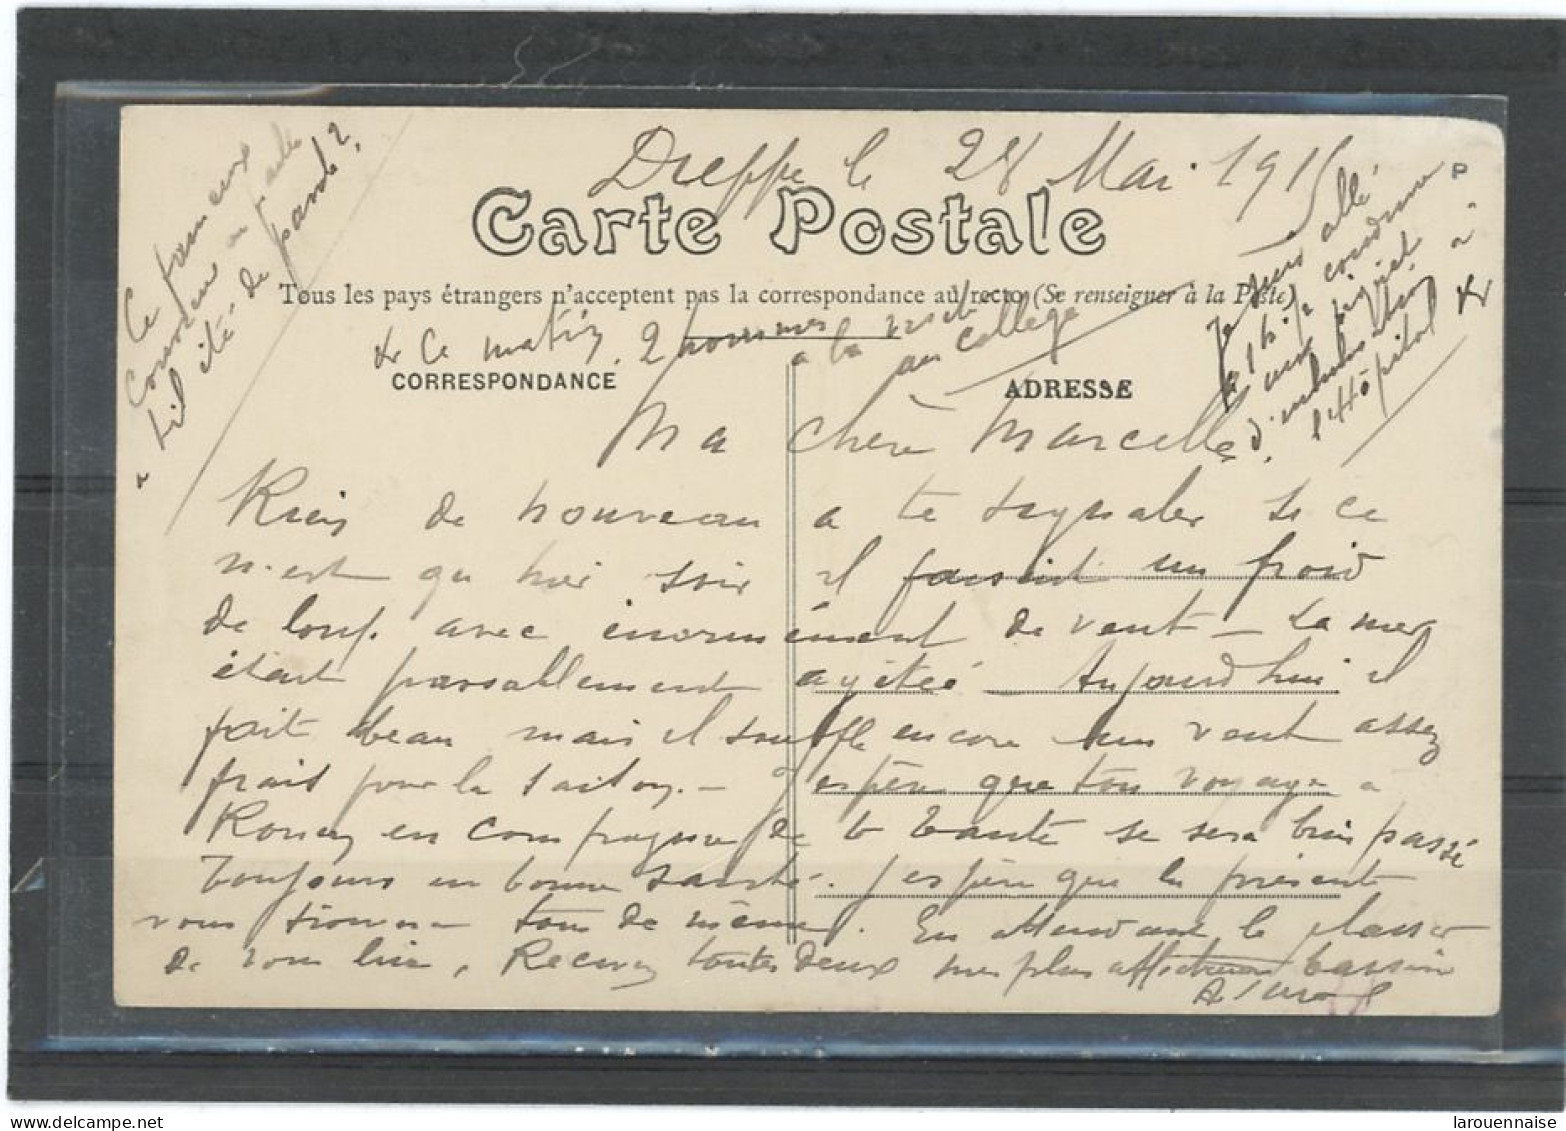 Dieppe le 28 Mai 191
Carte Postale
Tous les pays étrangers n'acceptent pas la correspondance au recto (Se renseigner à la Poste)
Ce matin 2 hommes
a la visite
au college
CORRESPONDANCE
ADRESSE
Ce fameux
concours on
t'il été de
Je suis allé
a 1 h 1/2 conduire
un
d'
l'Hôpital
Ma chère Marcelle
Rien de nouveau a te signaler si ce
n'est qu hier soir il faisait un froid
de loup avec énormément de vent – La mer
était passablement agitée – Aujourd'hui il
fait beau mais il souffle encore un vent assez
frais pour la saison. – J'espère que ton voyage a
Rouen en compagnie de ta tante se sera bien passé
Toujours en bonne santé. J'espère que la présente
vous trouvera tous de même. En attendant le plaisir
de vous lire, Recevez toutes deux mes plus affectueux baisers
larouennaise